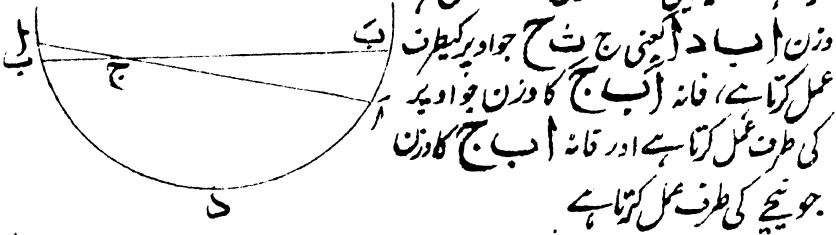 وزن ا ب د اَ یعنی ج ث ح جو اوپر کیطرف
عمل کرتا ہے، فانہ اَ بَ ج کا وزن جو اوپر
کی طرف عمل کرتا ہے اور فانہ ا ب ج کا وزن
جو نیچے کی طرف عمل کرتا ہے
ا
ب
ج
بَ
اَ
د